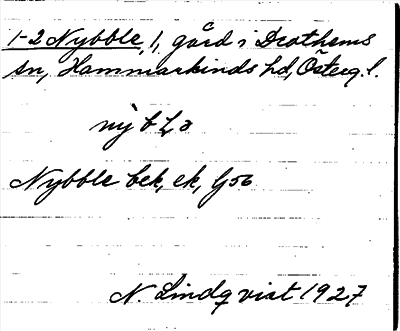 1-2 Nybble, 1, gård i Drothems
sn, Hammarkinds hd, Österg. l.
nỳb
Nybble bek, ek, G56
N Lindqvist 1927